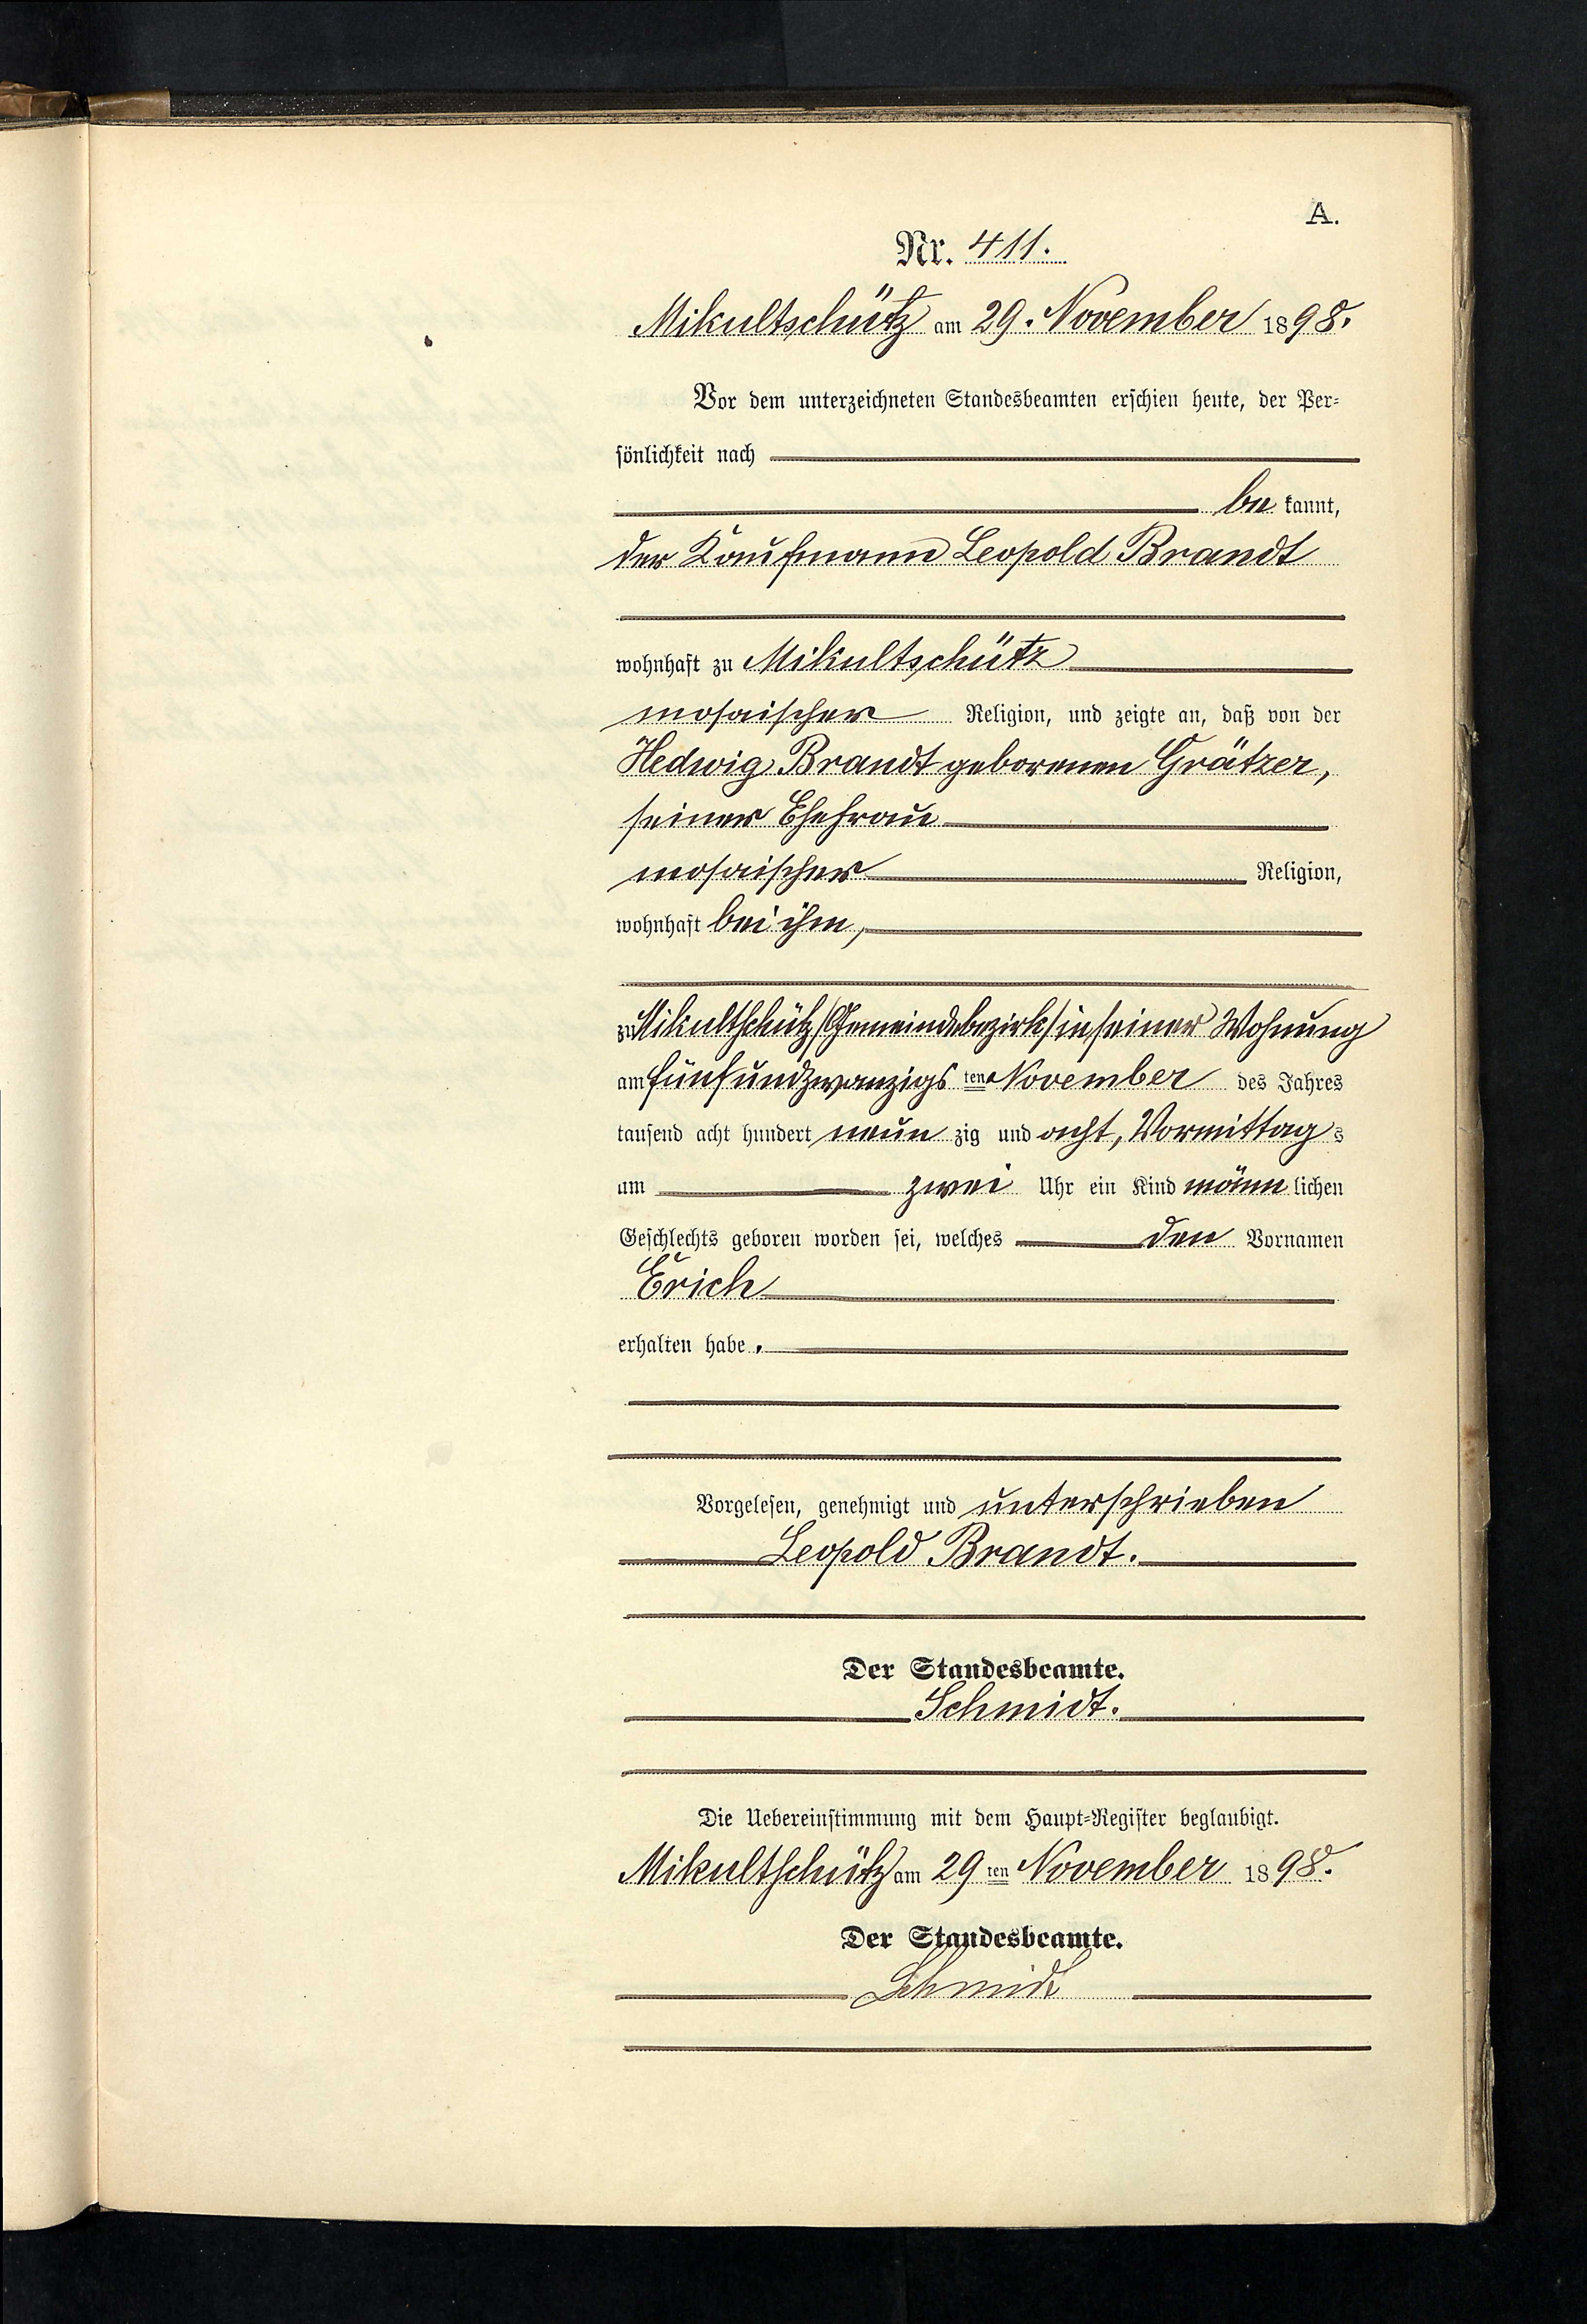 A.
Nr. 411.
Mikultschütz am 29. November 1898.
Vor dem unterzeichneten Standesbeamten erschien heute, der Per-
sönlichkeit nach
be kannt,
der Kaufmann Leopold Brandt
wohnhaft zu Mikultschütz
mosaischer Religion, und zeigte an, daß von der
Hedwig Brandt geborenen Grätzer,
seiner Ehefrau
mosaischer Religion,
wohnhaft bei ihm,
zu Mikultschütz /Gemeindebezirk/ in seiner Wohnung
am fünfundzwanzigs ten November des Jahres
tausend acht hundert neun zig und acht, Vormittag s
um zwei Uhr ein Kind männ lichen
Geschlechts geboren worden sei, welches den Vornamen
Erich
erhalten habe.
Vorgelesen, genehmigt und unterschrieben
Leopold Brandt.
Der Standesbeamte.
Schmidt.
Die Uebereinstimmung mit dem Haupt-Register beglaubigt.
Mikultschütz am 29 ten November 1898.
Der Standesbeamte.
Schmidt